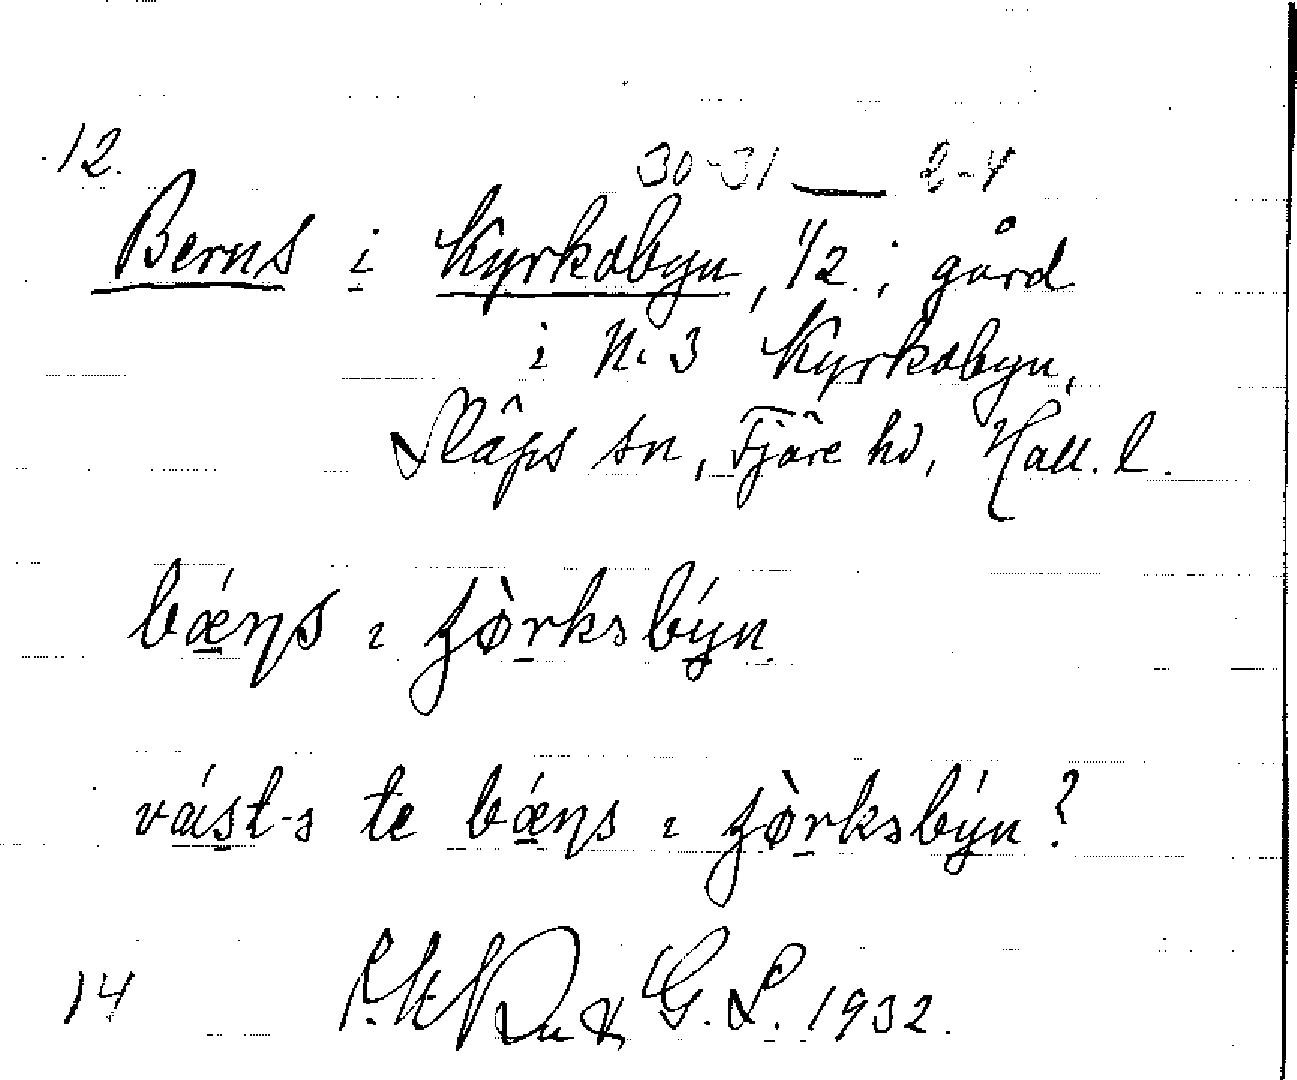 12.
30-31 — 2-4
Berns i Kyrkobyn, 1/2 i gård
i N. 3 Kyrkobyn,
Släps sn, Fjäre hd, Hall. l.
bǽṇs ɩ ʒø̀rksbýn
vást-s te bǽṇs ɩ ʒø̀rksbýn?
14 G. L. 1932.